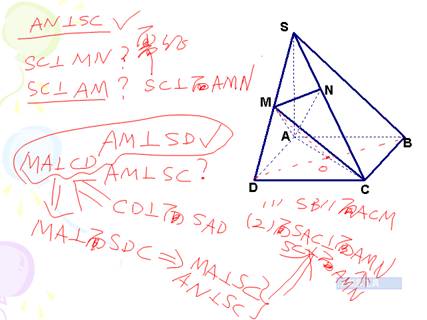 AN⊥SC √
SC⊥MN?
SC⊥AM? SC⊥面AMN
AM⊥SD√
MA⊥CD
AM⊥SC?
CD⊥面SAD
MA⊥面SDC ⇒ MA⊥SC
AN⊥SC
S
M
N
A
B
D
C
O
(1) SB∥面ACM
(2) 面SAC⊥面AMN
SC⊥面AMN